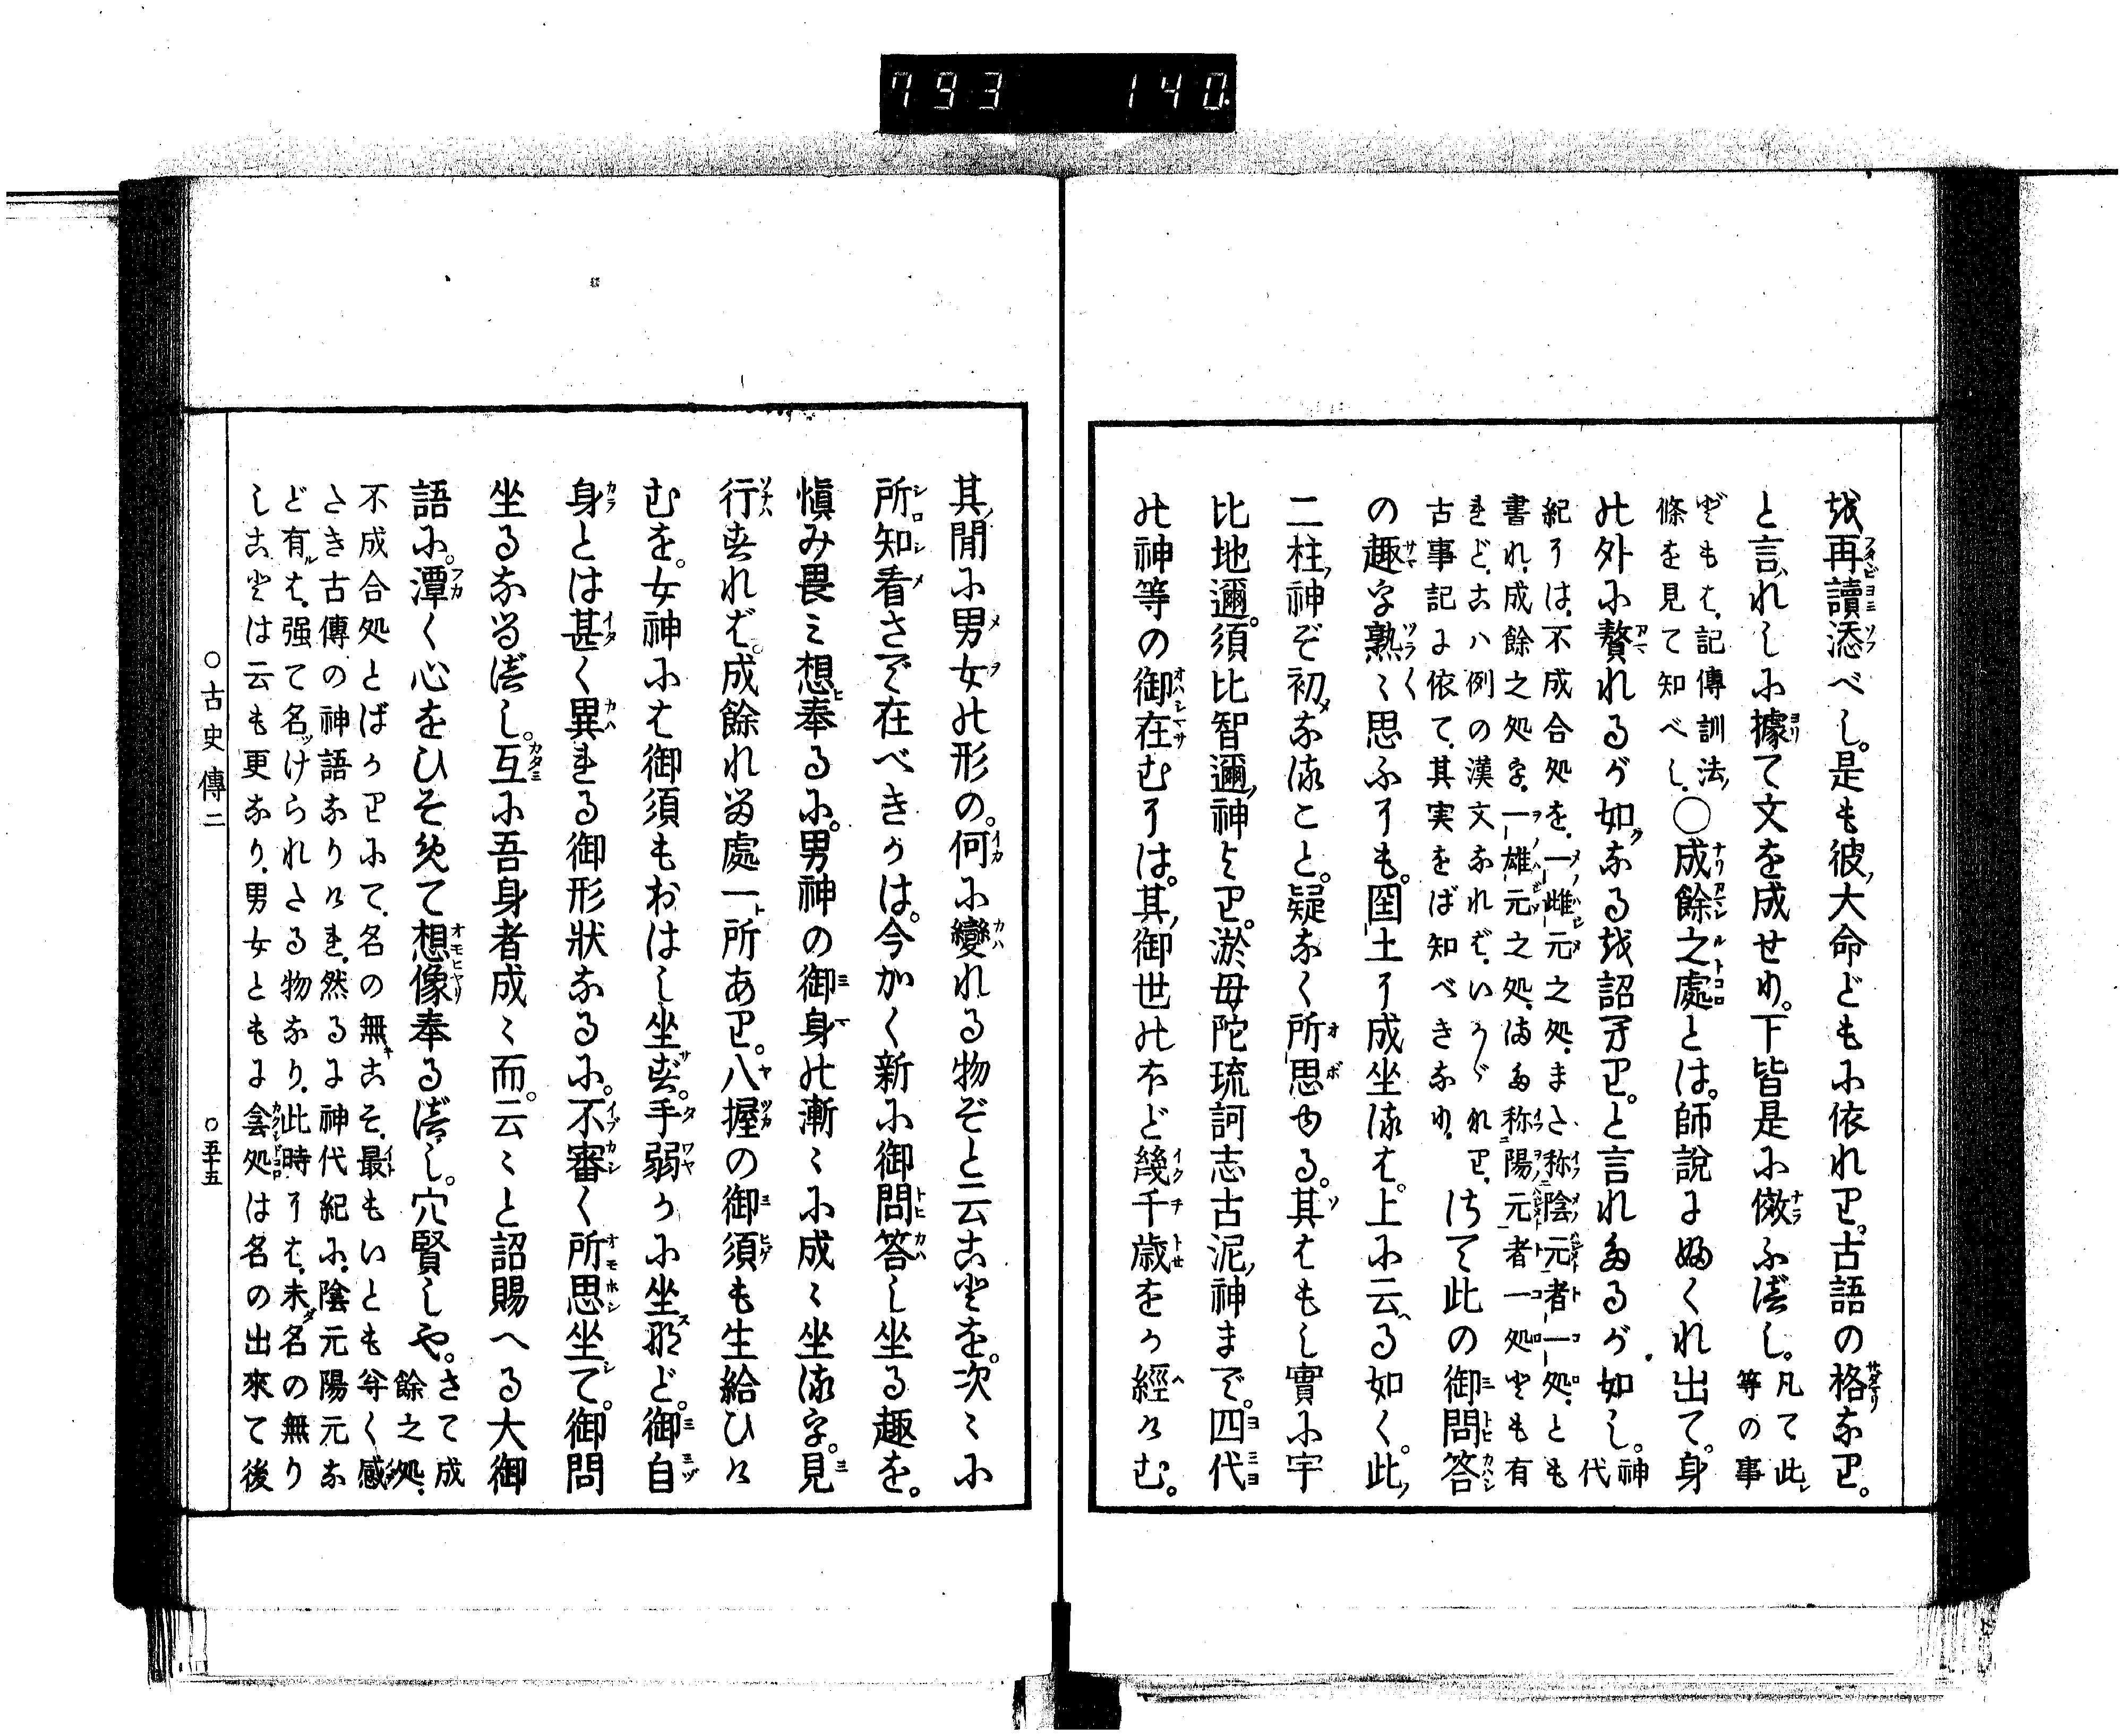 793 140
を再讀添べし。是も彼大命どもに依れり。古語の格なり。
と言れしに據て文を成せり。下皆是に傚ふべし。凡て此等の事
どもは、記傳訓法條を見て知べし。○成餘之處とは。師說に妷くれ出て。身
の外に贅れるが如なるを詔へり。と言れたるが如し。神代
紀には、不成合処を、一雌元之処、また称陰元者一処、とも
書れ、成餘之処を、一雄元之処、また称陽元者一処とも有
れど、こハ例の漢文なれば、いかゞなり、さて此の御問答
古事記に依て、其実をば知べきなり、
の趣を熟〻思ふにも。国土に成坐るは。上に云る如く。此
二柱神ぞ初なること。疑なく所思ゆる。其はもし實に宇
比地邇。須比智邇神より。淤母陀琉訶志古泥神まで。四代
の神等の御在むには。其御世のほど幾千歲をか經けむ。
其間に男女の形の。何に變れる物ぞと云ことを。次〻に
所知看さで在べきかは。今かく新に御問答し坐る趣を。
愼み畏み想奉るに。男神の御身の漸〻に成〻坐るを。見
行すれば。成餘れる處一所あり。八握の御須も生給ひけ
むを。女神には御須もおはし坐ず。手弱かに坐など。御自
身とは甚く異れる御形狀なるに。不審く所思坐て。御問
坐るなるべし。互に吾身者成〻而。云〻と詔賜へる大御
語に。潭く心をひそめて想像奉るべし。穴賢しや。さて成餘之処、
不成合処とばかりにて、名の無こそ、最もいとも奇く感
たき古傳の神語なりけれ、然るに神代紀に、陰元陽元な
ど有は、强て名けられたる物なり、此時には、未名の無り
しことは云も更なり、男女ともに陰処は名の出來て後
○古史傳二 ○五十五